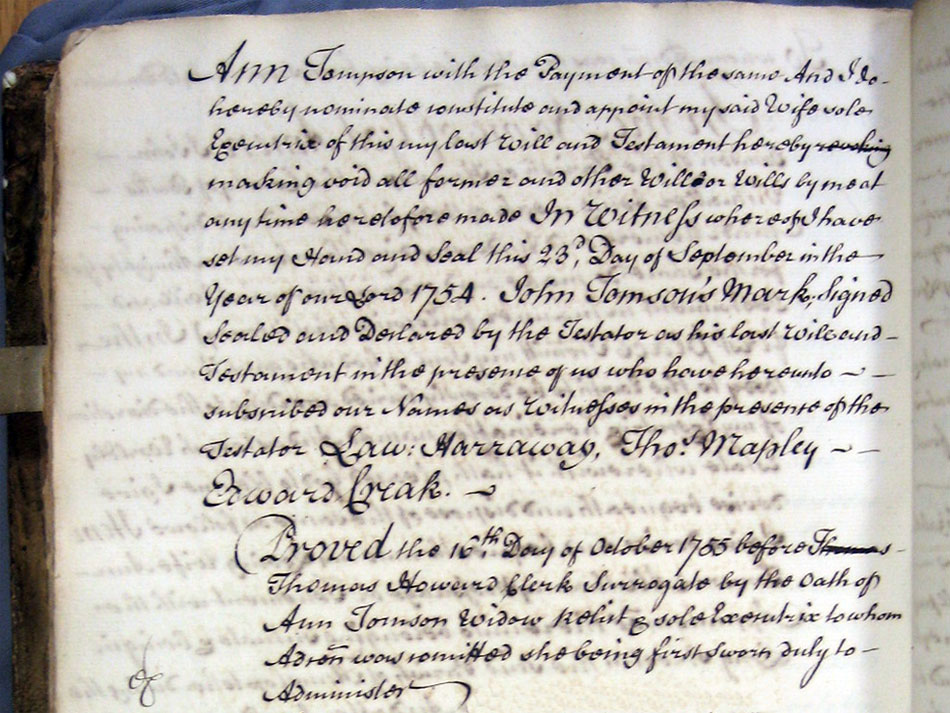 Ann Tompson with the Payment of the same And I do
hereby nominate constitute and appoint my said Wife sole
Executrix of this my last Will and Testament hereby revoking
making void all former and other Will or Wills by me at
any time heretofore made In Witness whereof I have
set my Hand and Seal this 23d. Day of September in the
Year of our Lord 1754. John Tomson's Mark, Signed
Sealed and Declared by the Testator as his last Will and
Testament in the presence of us who have hereunto
subscribed our Names as Witnesses in the presence of the
Testator Law: Harraway, Thos. Mapley
Edward Creak.
Proved the 16th. Day of October 1755 before Thomas
Thomas Howard Clerk Surrogate by the Oath of
Ann Tomson Widow Relict & sole Executrix to whom
Adcon was comitted she being first sworn duly to
Administer